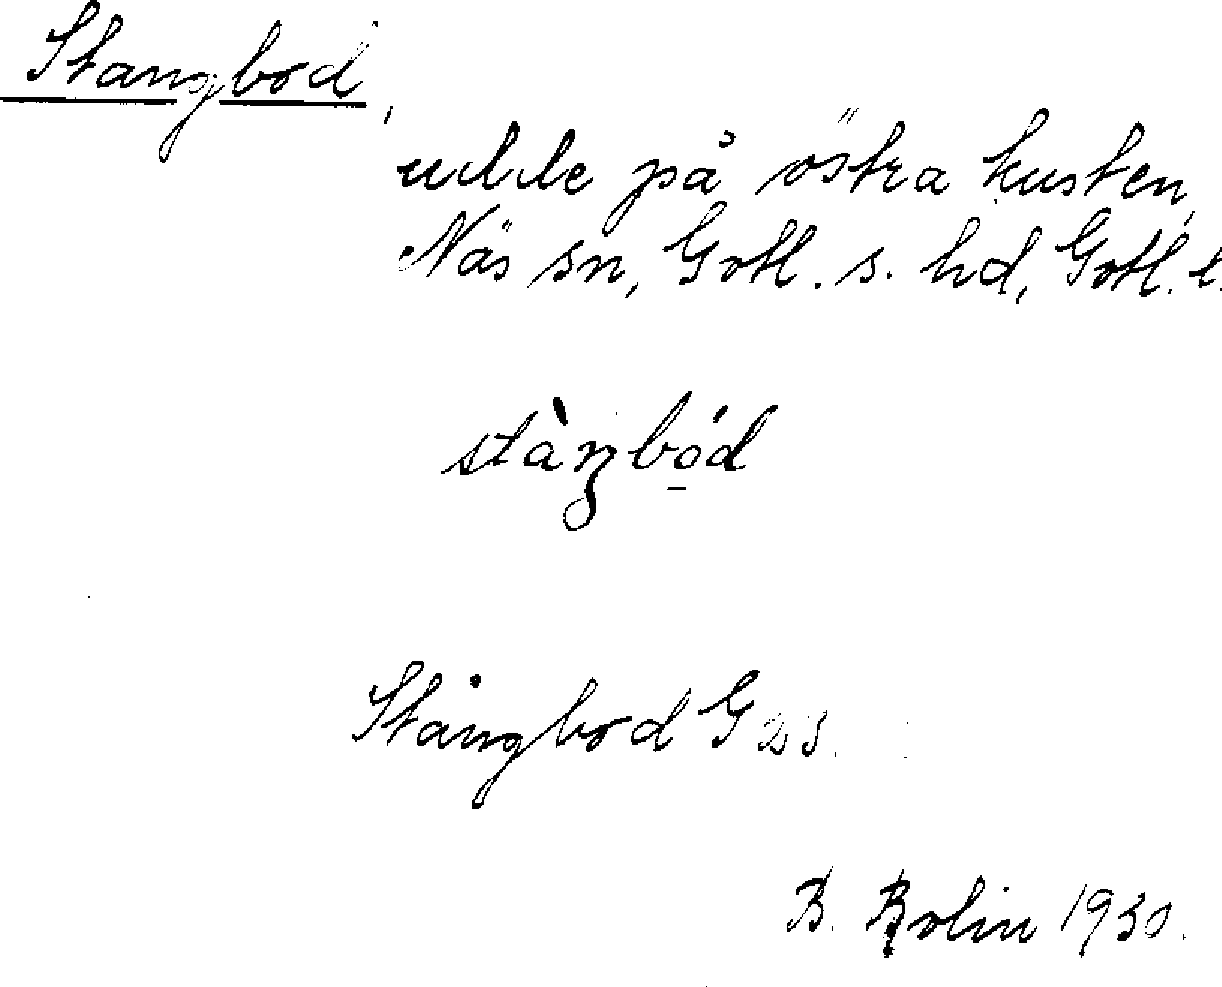 Stangbod,
udde på östra kusten,
Näs sn, Gotl. s. hd, Gotl. l.
stàŋbód
Stångbod G 23.
B. Bolin 1930.